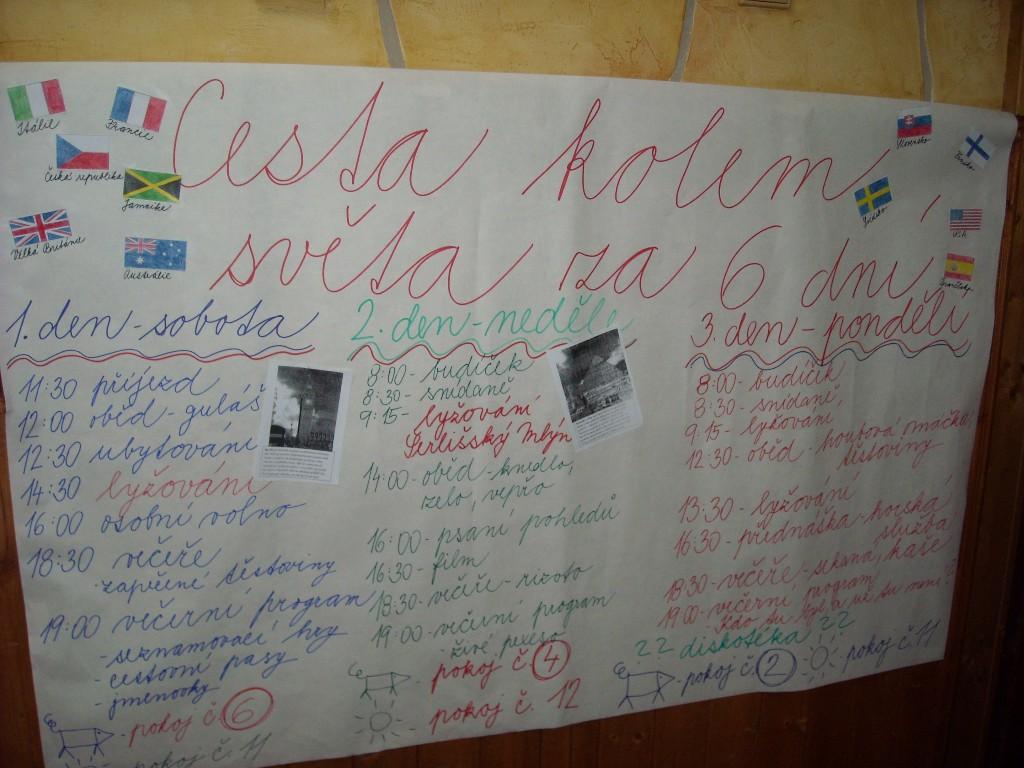 Cesta kolem
světa za 6 dní
Itálie
Francie
Česká republika
Jamaika
Velká Británie
Austrálie
Slovensko
Finsko
USA
1. den - sobota
11:30 příjezd
12:00 oběd - guláš
12:30 ubytování
14:30 lyžování
16:00 osobní volno
18:30 večeře
- zapečené těstoviny
19:00 večerní program
- seznamovací hry
- cestovní pasy
- jmenovky
- pokoj č. 6
- pokoj č. 11
2. den - neděle
8:00 - budíček
8:30 - snídaně
9:15 - lyžování
Šerlišský Mlýn
14:00 - oběd - knedlo,
zelo, vepřo
16:00 - psaní pohledů
16:30 - film
18:30 - večeře - rizoto
19:00 - večerní program
- živé pexeso
- pokoj č. 4
- pokoj č. 12
3. den - pondělí
8:00 - budíček
8:30 - snídaně,
9:15 - lyžování,
12:30 - oběd - houbová omáčka,
těstoviny
13:30 - lyžování
16:30 - přednáška - horská
služba
18:30 - večeře - sekaná, kaše
19:00 - večerní program
- Kdo tu byl a už tu není?
?? diskotéka ??
- pokoj č. 2
- pokoj č. 11